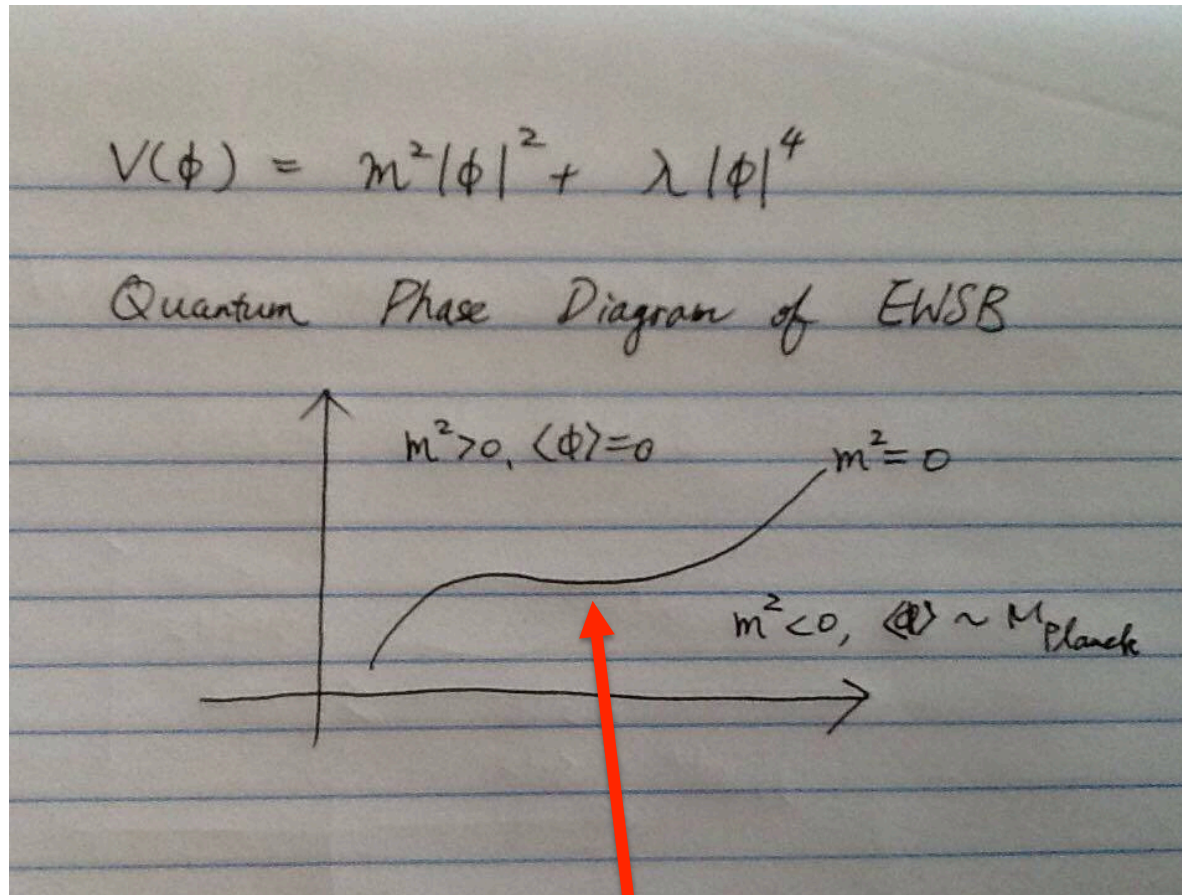 V(φ) = m²|φ|² + λ|φ|⁴
Quantum Phase Diagram of EWSB
m²>0, ⟨φ⟩=0
m²=0
m²<0, ⟨φ⟩ ~ M_Planck